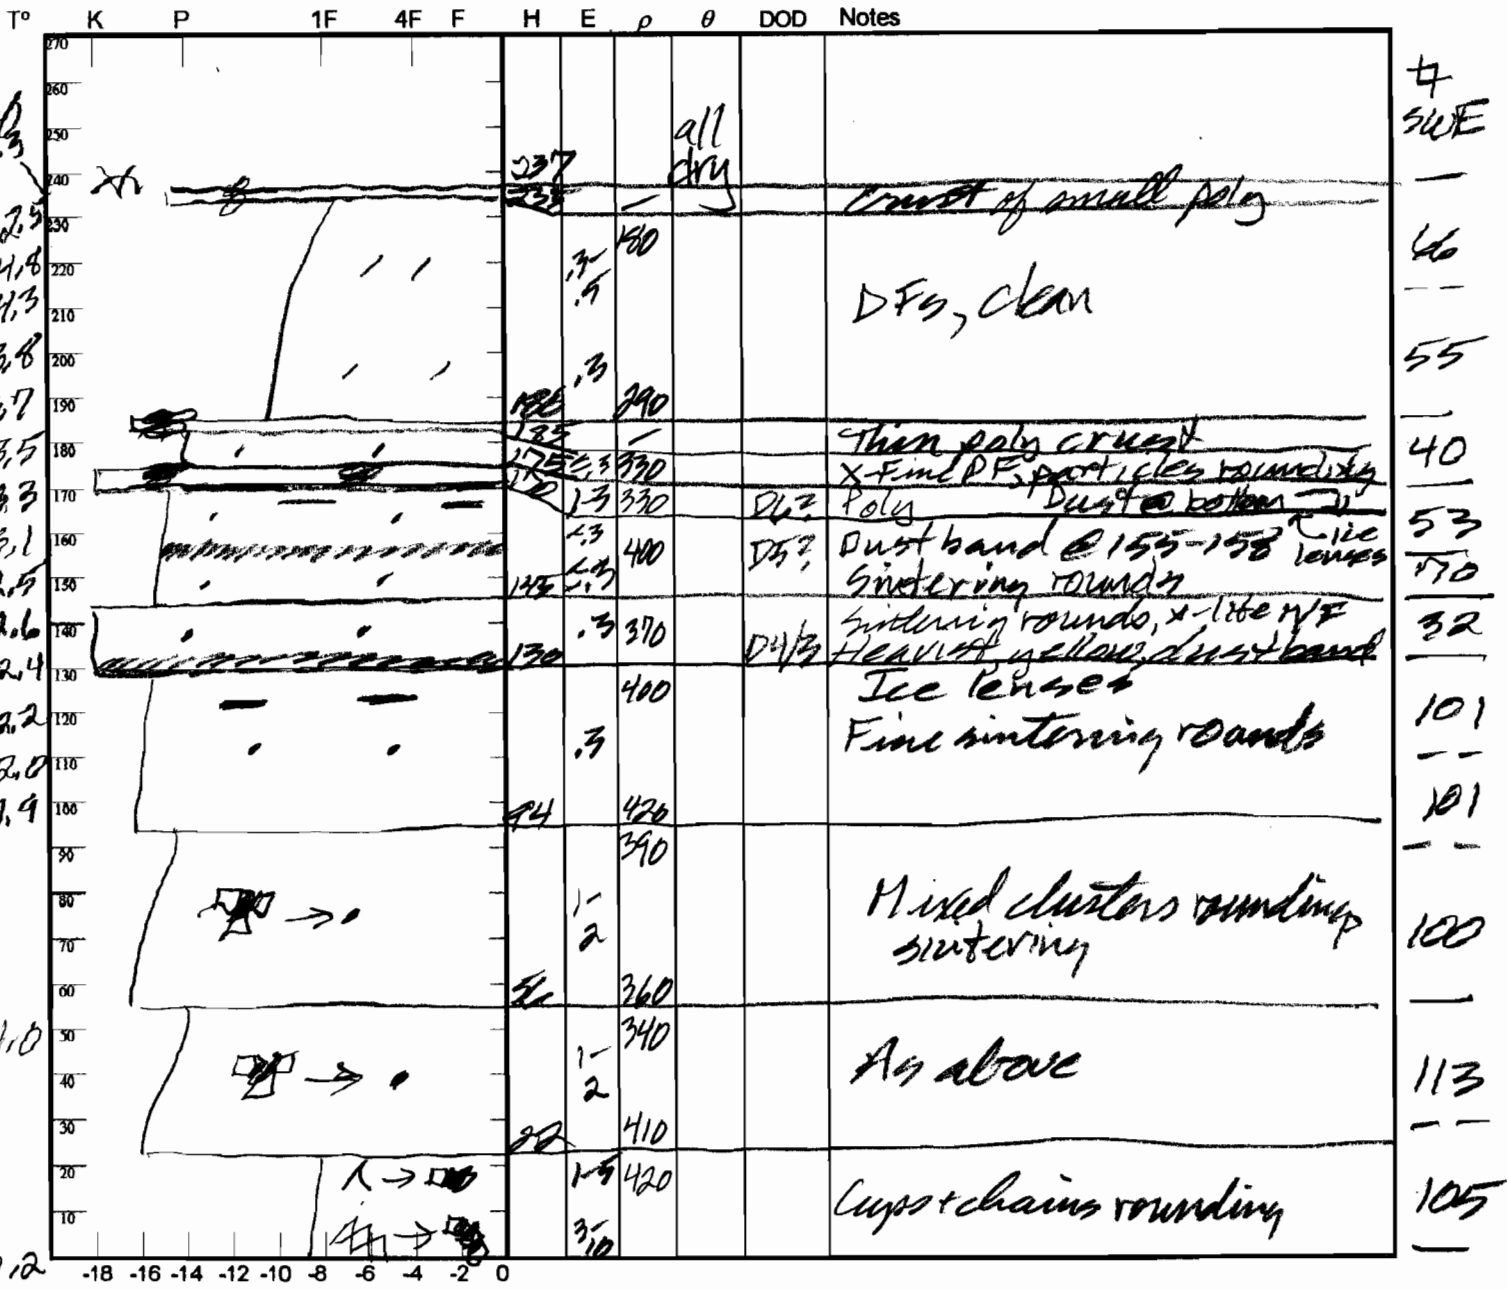 T° K P 1F 4F F H E ρ θ DOD Notes
270
260
250
240
230
220
210
200
190
180
170
160
150
140
130
120
110
100
90
80
70
60
50
40
30
20
10
-18 -16 -14 -12 -10 -8 -6 -4 -2 0
#
SWE
all
dry
237
Crust of small poly
180
.3-
.5
DFs, clean
66
.3
290
55
185
Thin poly crust
175 <.3 330 X-Fine DF, particles rounding
40
170 1.3 330 D6? Poly Dust @ bottom
53
<.3 400 D5? Dust band @ 155-158 ice
lenses
70
145 Sintering rounds
.3 370 Sintering rounds, x-lite M/F
32
130 D4/3 Heaviest, yellow, dust band
400 Ice lenses
101
.3 Fine sintering rounds
94 420
101
390
1-
2
Mixed clusters rounding
sintering
100
360
340
1-
2
As above
113
22 410
1-5 420
Cups + chains rounding
105
3-
10